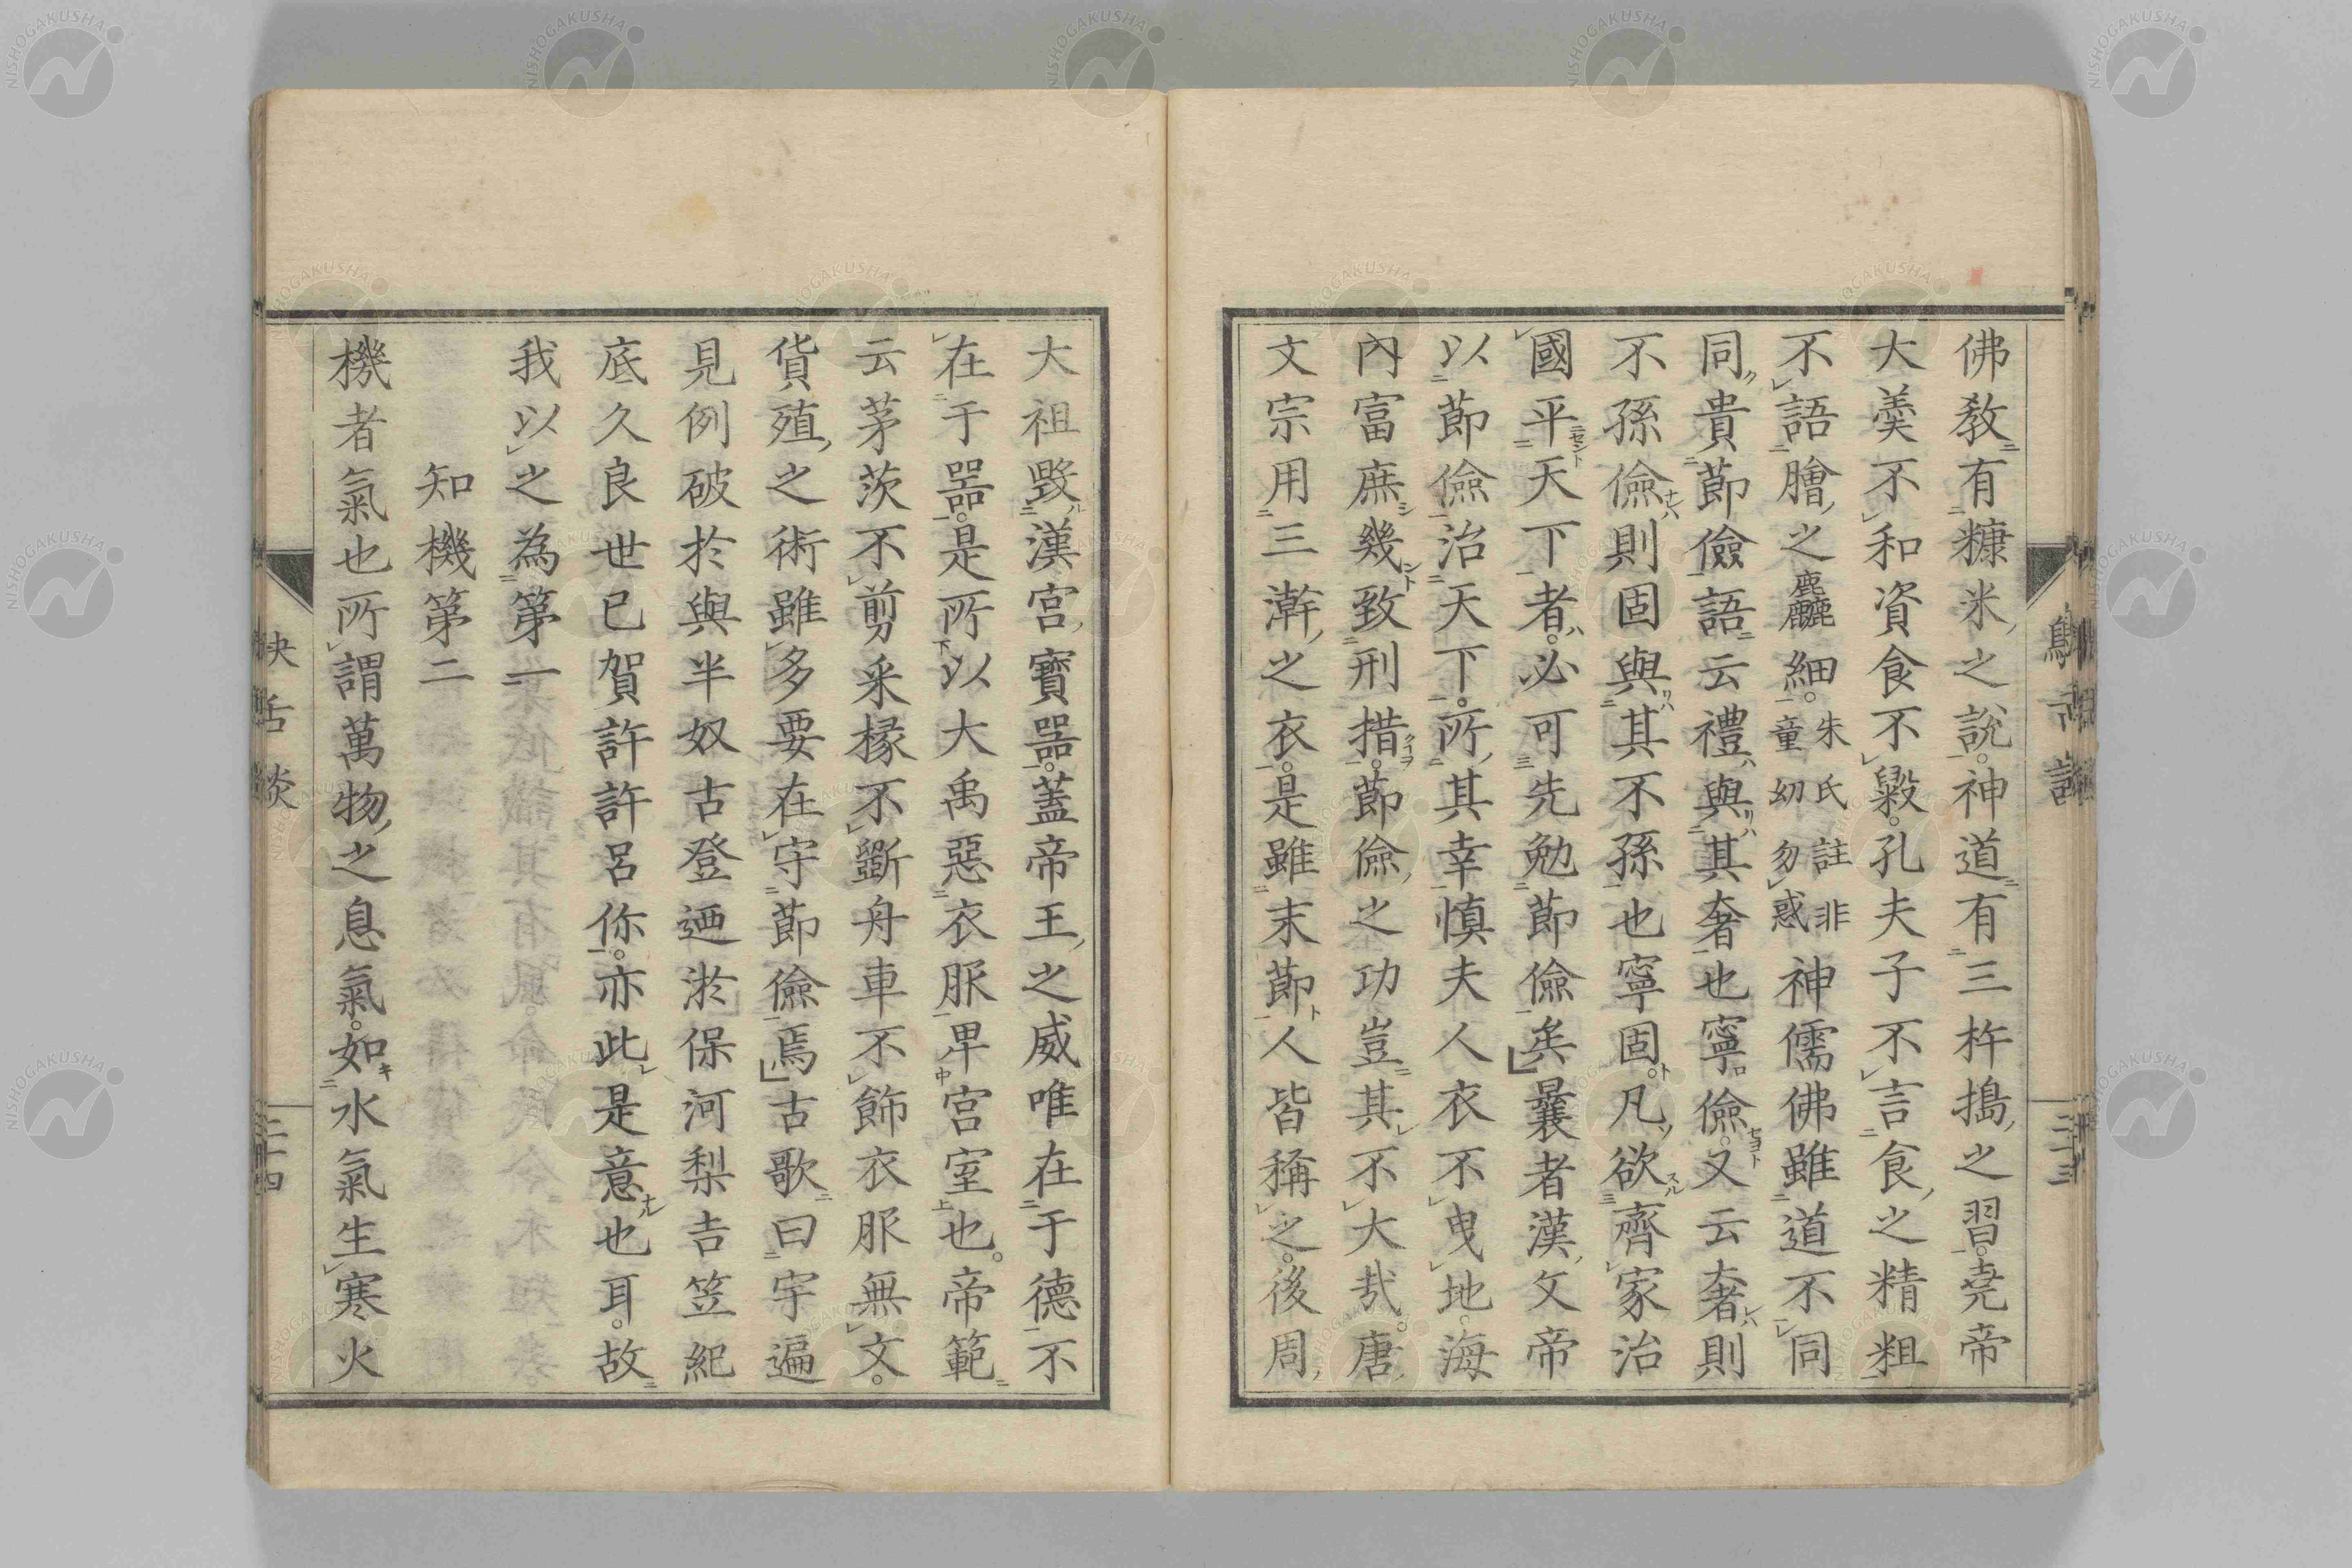 佛教有糠米之說。神道有三杵搗之習。堯帝
大羹不和資食不毇。孔夫子不言食之精粗
不語膾之麤細。朱氏註非童幼勿惑神儒佛雖道不同
同貴節儉語云禮與其奢也寧儉。又云奢則
不孫儉則固與其不孫也寧固。凡欲齊家治
國平天下者。必可先勉節儉矣」曩者漢文帝
以節儉治天下。所其幸慎夫人衣不曳地。海
內富庶幾致刑措。節儉之功豈其不大哉。唐
文宗用三澣之衣。是雖末節人皆稱之。後周
三十三
大祖毀漢宮寶器。蓋帝王之威唯在于德不
在于器。是所以大禹惡衣服卑宮室也。帝範
云茅茨不剪采椽不斵舟車不飾衣服無文。
貨殖之術雖多要在守節儉焉」古歌曰宇遍
見例破於與半奴古登迺淤保河梨吉笠紀
底久良世已賀許許呂你。亦此是意也耳。故
我以之為第一
知機第二
機者氣也所謂萬物之息氣。如水氣生寒火
三十四